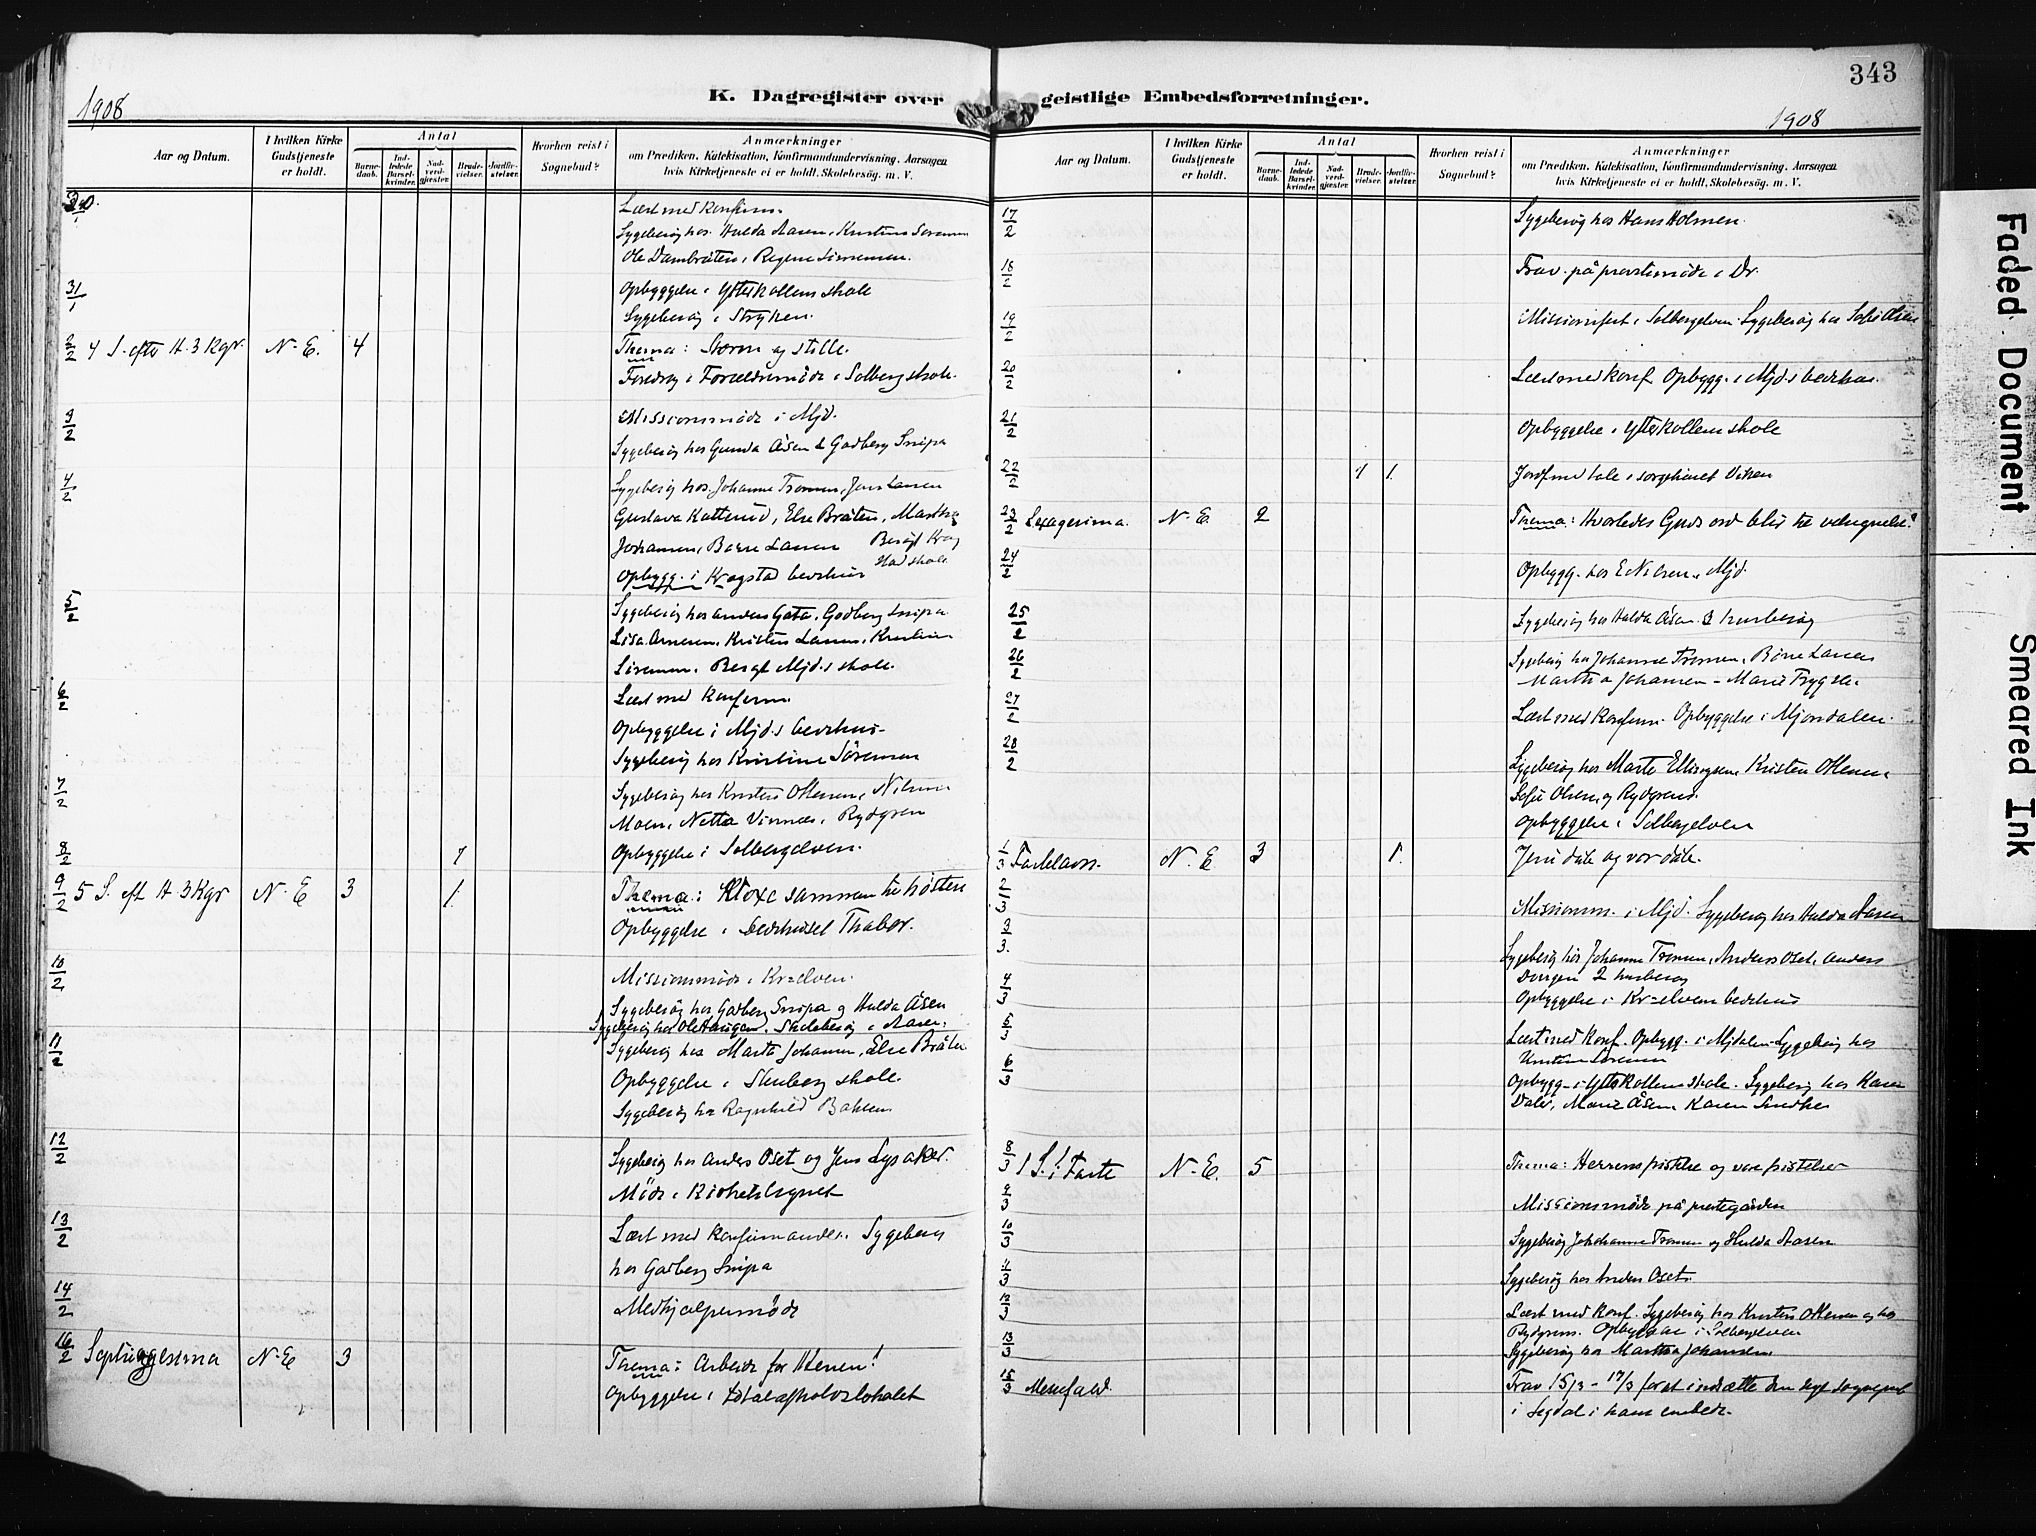 343
1908
K. Dagregister over geistlige Embedsforretninger.
1908
Aar og Datum.
I hvilken Kirke Gudstjeneste er holdt.
Antal
Barnedaab.
Indledede Barselkvinder.
Nadverdgjester.
Brudevielser.
Jordfæstelser.
Hvorhen reist i Sognebud?
Anmærkninger
om Prædiken, Katekisation, Konfirmandundervisning, Aarsagen
hvis Kirketjeneste ei er holdt. Skolebesøg. m. V.
30/1 Læst med konfirm.
Sygebesøg hos Hulda Aasen, Kristine Sørensen
Ole Dambråten, Regine Simensen.
31/1 Opbyggelse i Ytterkollens skole
Sygebesøg i Stryken.
2/2 4 S. efter H. 3 Kgr. N-E. 4 Thema: Storm og stille.
Foredrag i Forældremøde i Solberg skole.
3/2 Missionsmøde i Mjd.
Sygebesøg hos Gunda Åsen & Gadberg Snipa
4/2 Sygebesøg hos Johanne Tromen, Jens Larsen
Gustava Katterud, Else Bråten, Martha
Johansen, Børre Larsen Besøgt Krog
stad skole
Opbygg. i Krogstad bedehus
5/2 Sygebesøg hos Anders Gata, Godberg Snipa
Lisa Arnesen, Kristen Larsen, Kristine
Sørensen. Besøgt Mjd.s skole.
6/2 Læst med konfirm.
Opbyggelse i Mjd.s bedehus
Sygebesøg hos Kristine Sørensen
7/2 Sygebesøg hos Kristen Ottersen, Nilsine
Moen, Netta Vinnæs, Rydgren
8/2 1 Opbyggelse i Solbergelven.
9/2 5 S. eft H 3 Kgr N-E 3 1. Thema: Vloxe sammen til høsten
Opbyggelse i bedehuset Thabor.
10/2 Missionsmøde i Kr-elven.
Sygebesøg hos Gadberg Snipa og Hulda Åsen
Sygebesøg hos Ole Haugen. Skolebesøg i Aasen.
11/2 Sygebesøg hos Marta Johansen, Else Bråten
Opbyggelse i Stenberg skole.
Sygebesøg hos Ragnhild Bakken
12/2 Sygebesøg hos Anders Oset og Jens Lysaker.
Møde i Kirketilsynet
13/2 Læst med konfirmander. Sygebesøg
hos Gadberg Snipa
14/2 Medhjælpermøde
16/2 Septuagesima N-E 3 Thema: Arbeide for Herren!
Opbyggelse i totalafholdslokalet
Aar og Datum.
I hvilken Kirke Gudstjeneste er holdt.
Antal
Barnedaab.
Indledede Barselkvinder.
Nadverdgjester.
Brudevielser.
Jordfæstelser.
Hvorhen reist i Sognebud?
Anmærkninger
om Prædiken, Katekisation, Konfirmandundervisning, Aarsagen
hvis Kirketjeneste ei er holdt. Skolebesøg. m. V.
17/2 Sygebesøg hos Hans Holmen.
18/2 Frav. på prostimøde i Dr.
19/2 Missionsfest i Solbergelven. Sygebesøg hos Sofie Olsen
20/2 Læst med konf. Opbygg. i Mjd.s bedehus.
21/2 Opbyggelse i Ytterkollens skole
22/2 1 1. Jordfæst. tale i sørgehuset Viken
23/2 Sexagesima. N-E. 2 Thema: Hvorledes Guds ord blir til velsignelse?
24/2 Opbygg. hos E Nilsen, Mjd.
25/2 Sygebesøg hos Hulda Åsen. 2 husbesøg
26/2 Sygebesøg hos Johanne Tromen, Børre Larsen
Martha Johansen - Marie Frygsle.
27/2 Læst med konfirm. Opbyggelse i Mjøndalen.
28/2 Sygebesøg hos Marte Ellingsen, Kristen Ottersen,
Sofie Olsen, og Rydgrens.
Opbyggelse i Solbergelven
1/3 Fastelavn. N-E 3 1. Jesu dåb og vor dåb.
2/3 Missionsm. i Mjd. Sygebesøg hos Hulda Aasen
3/3. Sygebesøg hos Johanne Tromen, Anders Oset, Anders
2 husbesøg
4/3 Opbyggelse i Kr-elvens bedehus
5/3 Læst med konf. Opbygg. i Mjdalen. Sygebesøg hos
Kristine Sørensen
6/3 Opbygg- i Ytterkollens skole. Sygebesøg hos Karen
Daler, Marie Åsen, Karen Smedhei
8/3 1 S. i Faste N-E. 5 Thema: Herrens fristelse og vore fristelser
9/3 Missionsmøde på prestegården
10/3 Sygebesøg Johanne Tromen og Hulda Aasen
11/3 Sygebesøg hos Anders Oset.
12/3 Læst med konf. Sygebesøg hos Kristen Ottersen og hos
Rydgrens. Opbyggelse i Solbergelven
13/3 Sygebesøg hos Martha Johansen.
15/3 Messefald. Frav 15/3 - 17/3 for at indsætte den sogneprest
i Sigdal i hans embede.
Faded Document
Smeared Ink